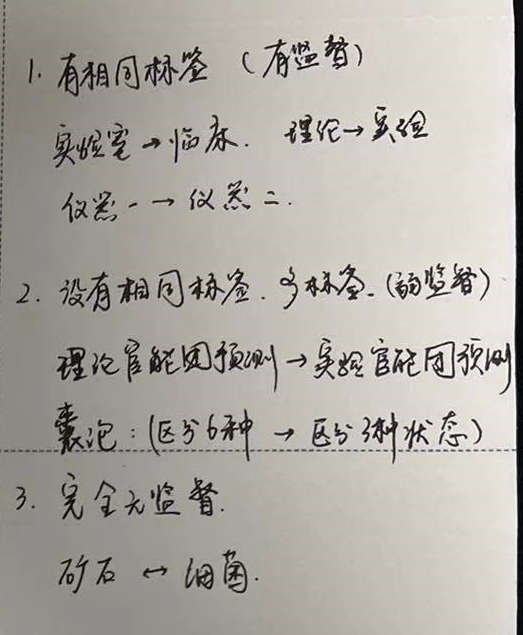 1. 有相同标签 (有监督)
实验室→临床. 理论→实验
仪器一→仪器二.
2. 没有相同标签. 多标签. (弱监督)
理论官能团预测→实验官能团预测
囊泡: (区分6种 → 区分3种状态)
3. 完全无监督.
矿石 ↔ 细菌.